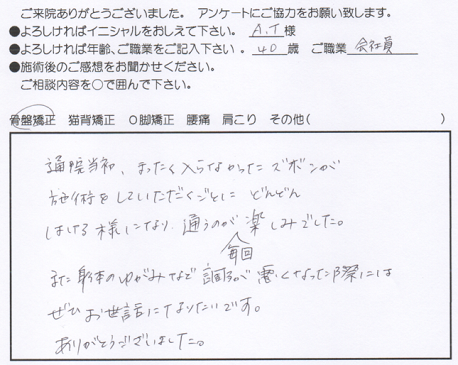 ご来院ありがとうございました。 アンケートにご協力をお願い致します。
●よろしければイニシャルをおしえて下さい。 A.T 様
●よろしければ年齢、ご職業をご記入下さい 。 40 歳 ご職業 会社員
●施術後のご感想をお聞かせください。
ご相談内容を○で囲んで下さい。
骨盤矯正 猫背矯正 O脚矯正 腰痛 肩こり その他( )
通院当初、まったく入らなかったズボンが
施術をしていただくごとに どんどん
はける様になり、通うのが毎回楽しみでした。
また身体のゆがみなどで調子が悪くなった際には
ぜひお世話になりたいです。
ありがとうございました。